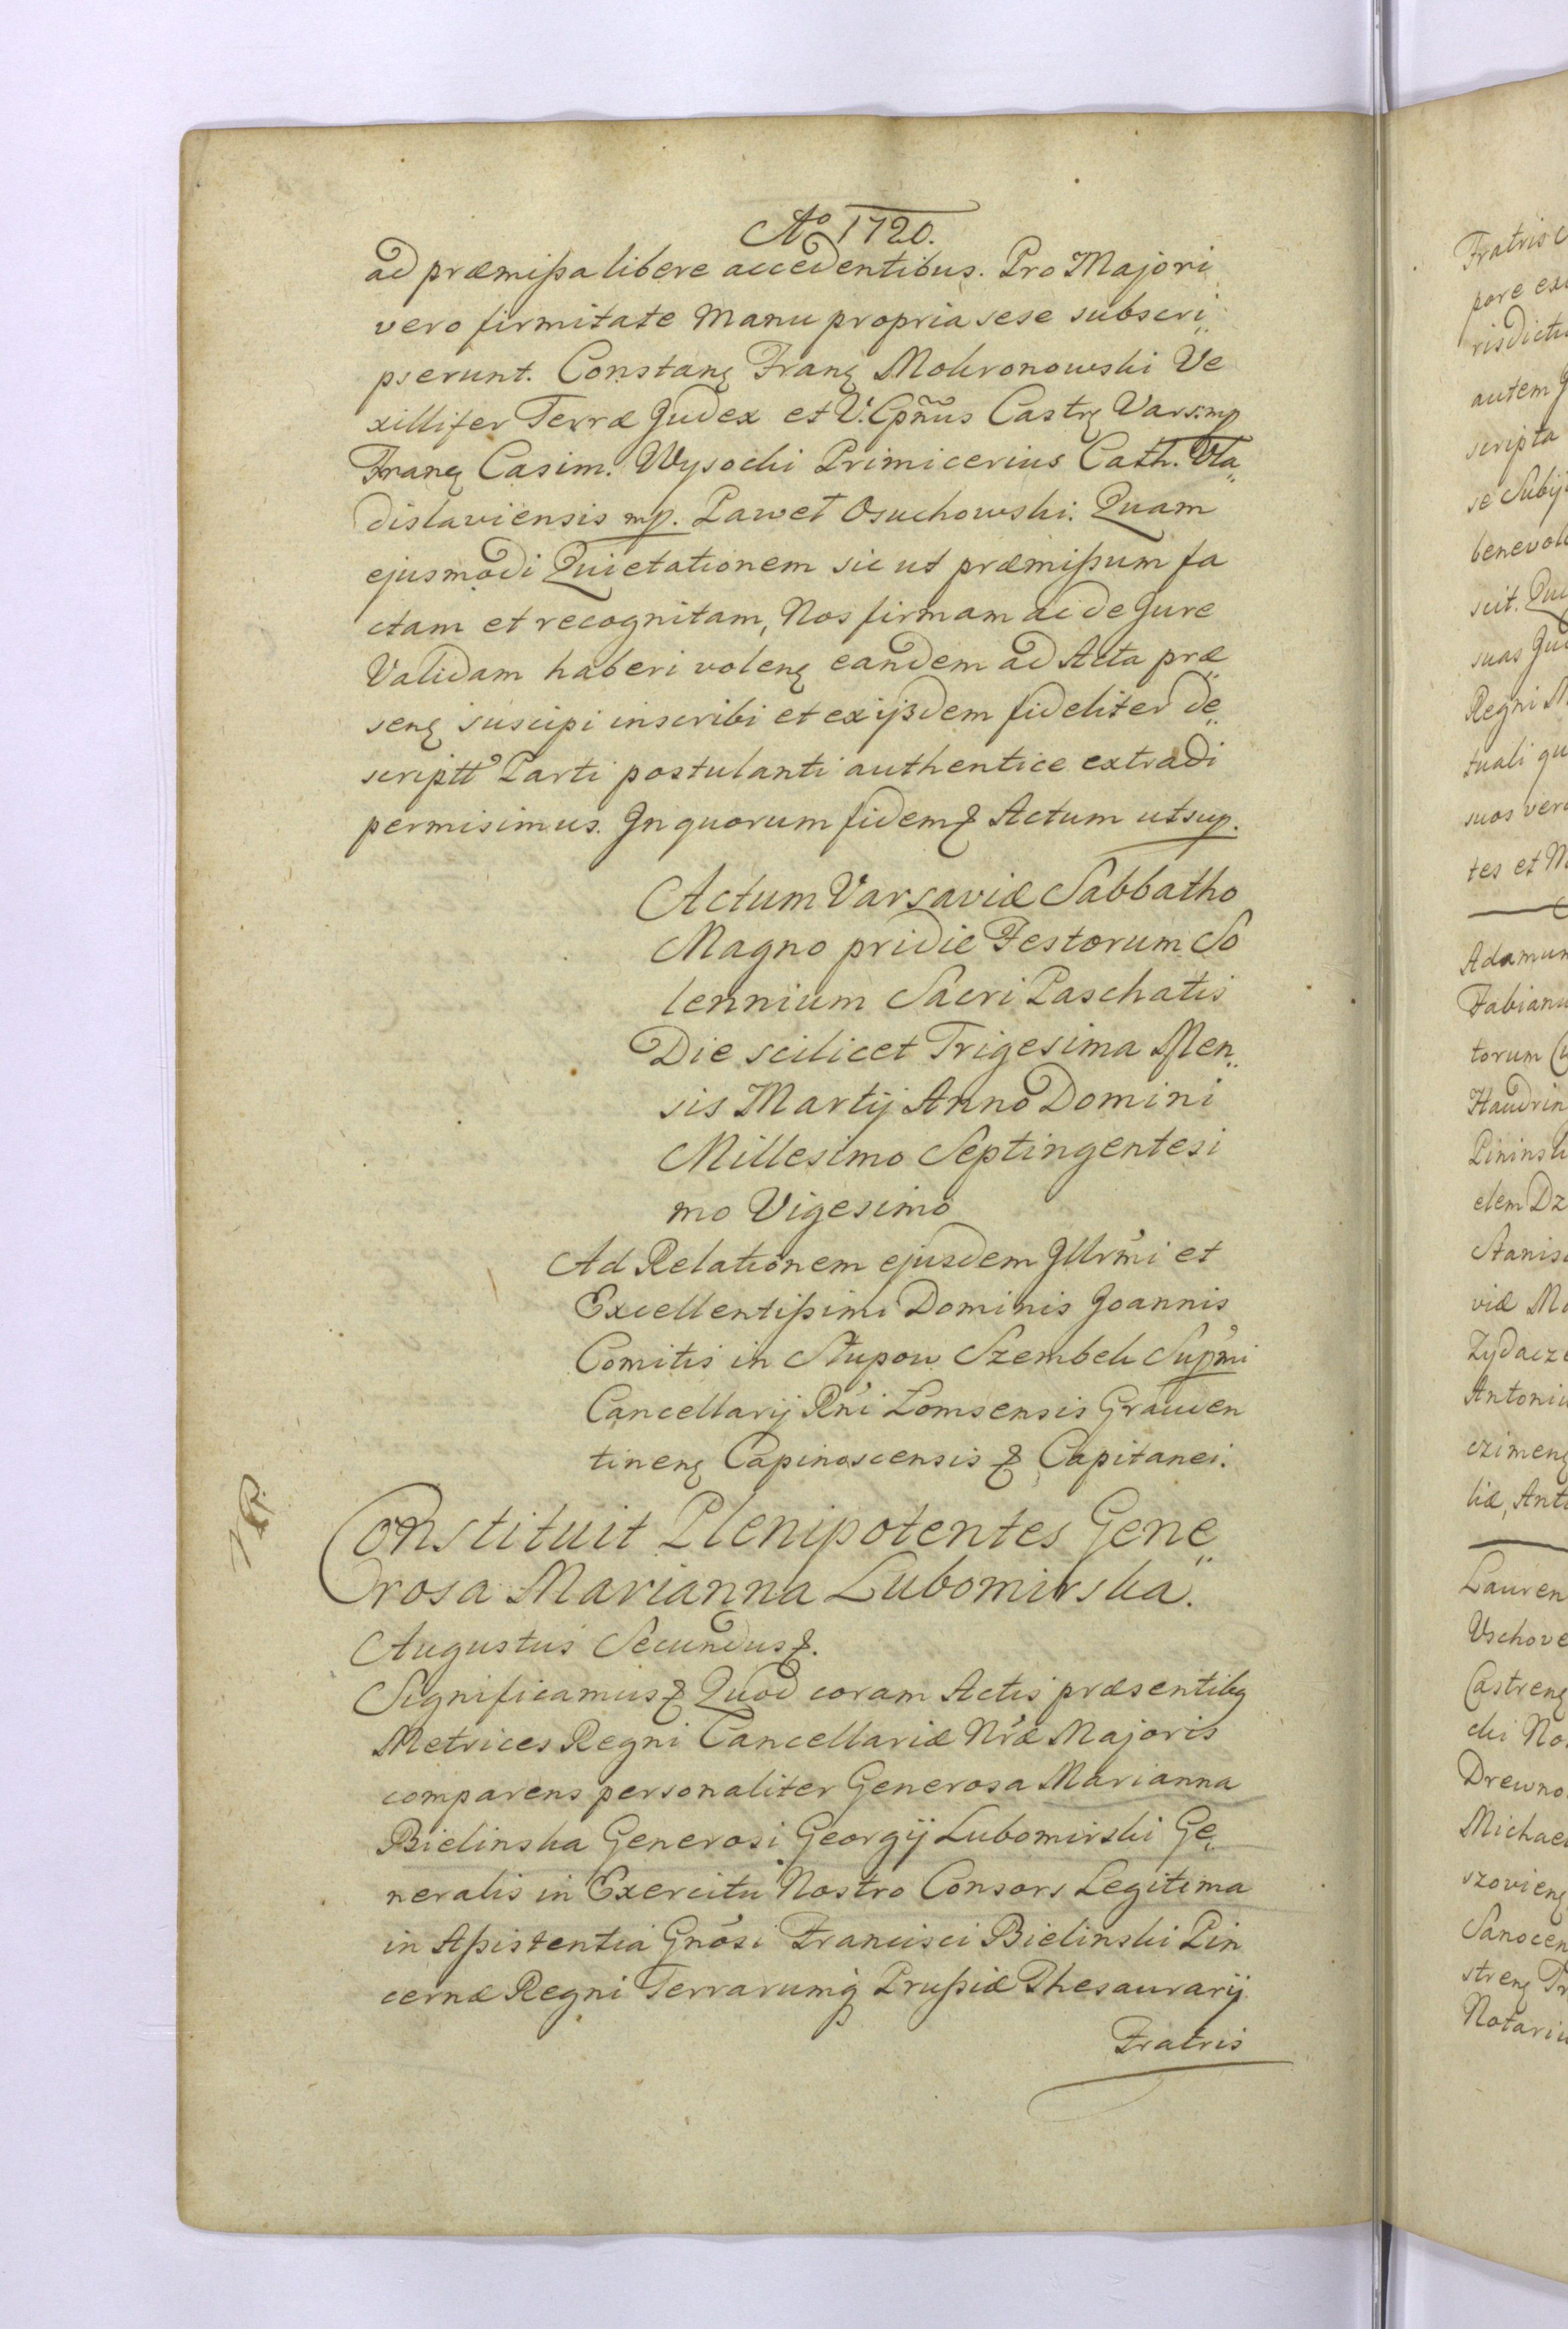 Aº 1720.
ad præmißa libere accedentibus. Pro Majori
vero firmitate Manu propria sese subscri„
pserunt. Constanʒ Franʒ Mokronowski Ve
xillifer Terræ Judex et V. Cpñus Castrʒ Vars: mp
Franʒ Casim. Wysocki Primicerius Cath. Vla„
dislaviensis mp. Paweł Osuchowski. Quam
ejusmodi Quietationem sic ut præmißum fa
ctam et recognitam, Nos firmam ac de Jure
Validam haberi volenʒ eandem ad Acta præ„
senʒ suscipi inscribi et ex ijsdem fideliter de„
scriptt Parti postulanti authentice extradi
permisimus. In quorum fidem & Actum ut sup.
Actum Varsaviæ Sabbatho
Magno pridie Festorum So
lennium Sacri Paschatis
Die scilicet Trigesima Men„
sis Martij Anno Domini
Millesimo Septingentesi
mo Vigesimo
Ad Relationem ejusdem Illrm̃i et
Excellentißimi Dominis Joannis
Comitis in Słupow Szembek Supm̃i
Cancellarij Rñi Lomsensis Grauden
tinenʒ Capinoscensis & Capitanei.
Constituit Plenipotentes Gene„
rosa Marianna Lubomirska.
Augustus Secundus &.
Significamus & Quod coram Actis præsentibʒ
Metrices Regni Cancellariæ Nræ Majoris
comparens personaliter Generosa Marianna
Bielinska Generosi Georgij Lubomirski Ge„
neralis in Exercitu Nostro Consors Legitima
in Aßistentia Gnosi Francisci Bielinski Pin
cernæ Regni Terrarumq Prußiæ Thesaurarij
Fratris
Fratris
pore ex
risdicti
autem J
scripta
se Subij
benevol
scit. Qu
suas Ju
Regni
tuali qu
suos ver
tes et M
Adamum
Fabianu
torum
Haudrin
Pininsk
elem Dz
Stanis
viæ M
Zydacz
Antoniu
czimenʒ
liæ, Ant
Lauren
Vschove
Castrenʒ
cki No
Drewno
Michae
szovienʒ
Sanocen
strenʒ Tr
Notariu